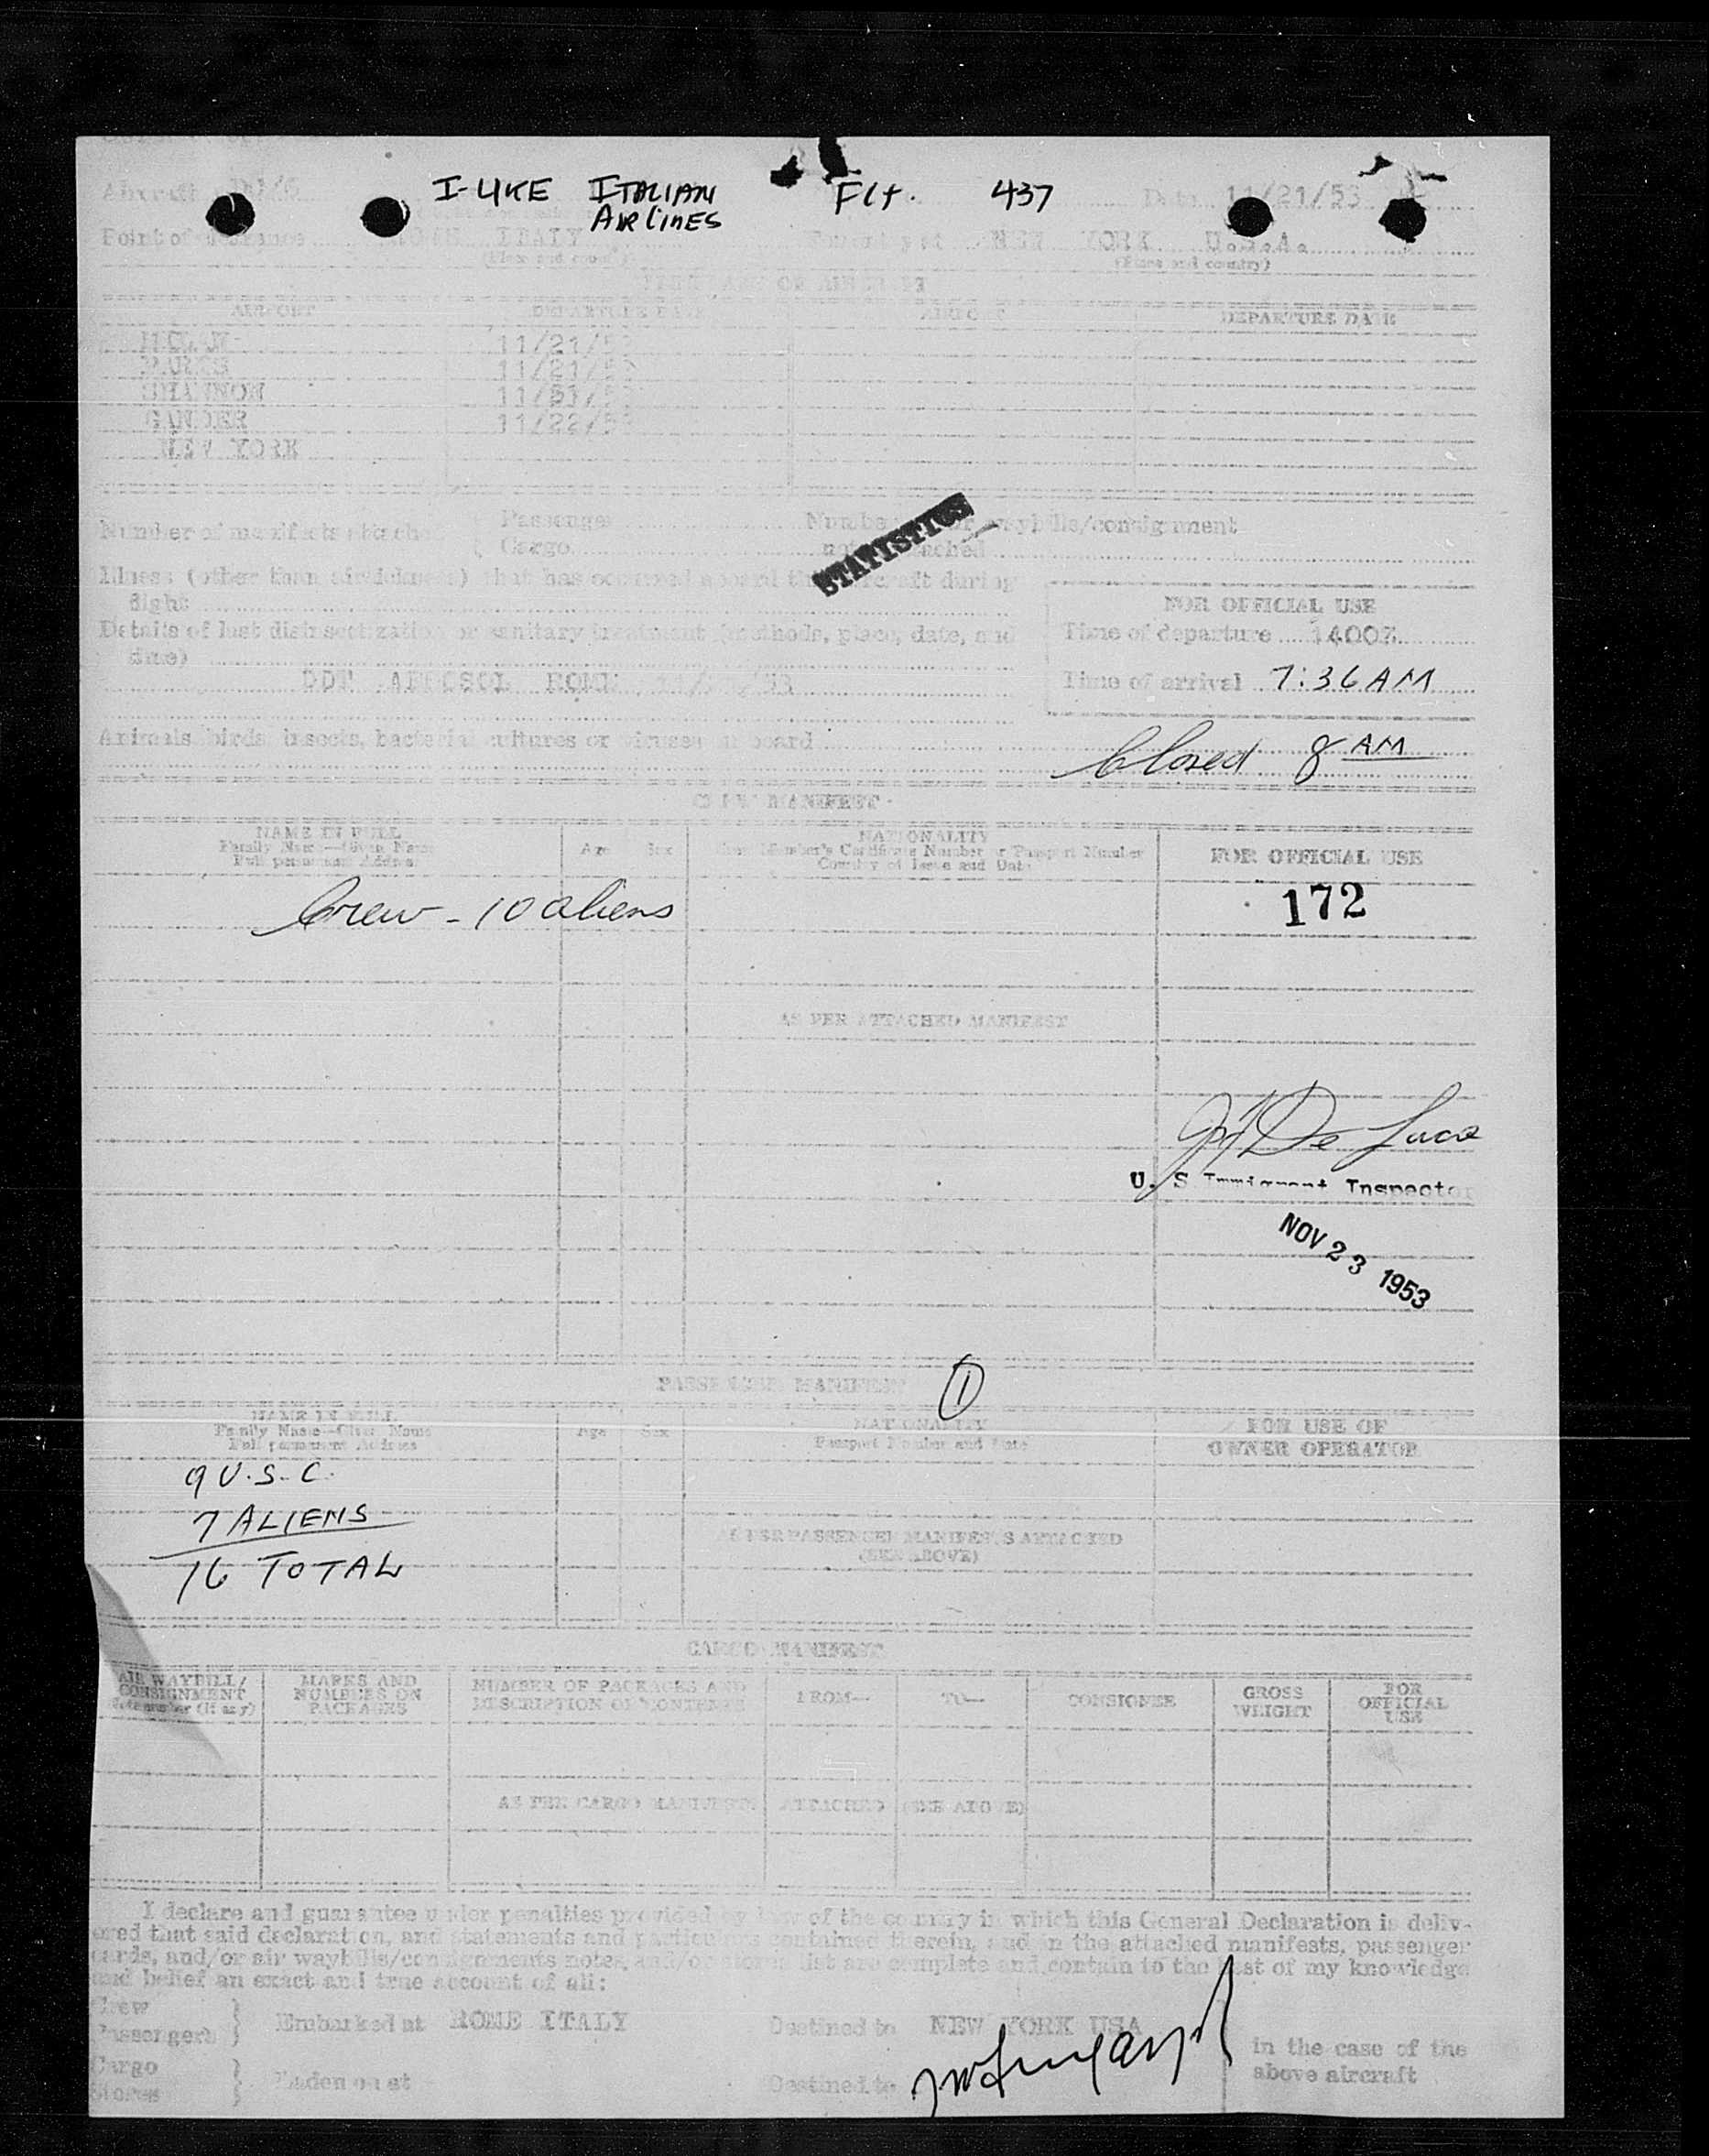 Aircraft DC/6 I-LIKE ITALIAN AIRLINES Flt. 437 Date 11/21/53
Point of clearance ROME ITALY For entry at NEW YORK U.S.A.
(Place and country) (Place and country)
AIRPORT DEPARTURE DATE AIRPORT DEPARTURE DATE
11/21/53
PARIS 11/21/53
SHANNON 11/21/53
GANDER 11/22/53
NEW YORK
Number of manifests attached Passenger Number of air waybills/consignment
Cargo not attached
STATISTICS
Illness (other than airsickness) that has occurred aboard the aircraft during
flight
FOR OFFICIAL USE
Details of last disinsectization or sanitary treatment (methods, place, date, and
time)
Time of departure 1400Z
DDT AEROSOL ROME
Time of arrival 7:36 AM
Animals, birds, insects, bacterial cultures or viruses on board
Closed 8 AM
CREW MANIFEST
NAME IN FULL
Family Name—Given Name
Full permanent Address
Age Sex
NATIONALITY
Crew Member's Certificate Number or Passport Number
Country of Issue and Date
FOR OFFICIAL USE
172
Crew - 10 aliens
AS PER ATTACHED MANIFEST
De Luca
U. S Immigrant Inspector
NOV 23 1953
PASSENGER MANIFEST
1
NAME IN FULL
Family Name—Given Name
Full permanent Address
Age Sex
NATIONALITY
Passport Number and State
FOR USE OF
OWNER OPERATOR
9 U.S.C.
7 ALIENS
16 TOTAL
AS PER PASSENGER MANIFESTS ATTACHED
(SEE ABOVE)
CARGO MANIFEST
AIR WAYBILL/
CONSIGNMENT
Note number (if any)
MARKS AND
NUMBERS ON
PACKAGES
NUMBER OF PACKAGES AND
DESCRIPTION OF CONTENTS
FROM—
TO—
CONSIGNEE
GROSS
WEIGHT
FOR
OFFICIAL
USE
AS PER CARGO MANIFESTS ATTACHED (SEE ABOVE)
I declare and guarantee under penalties provided by law of the country in which this General Declaration is deliv-
ered that said declaration, and statements and particulars contained therein, and in the attached manifests, passenger
cards, and/or air waybills/consignments notes, and/or stores list are complete and contain to the best of my knowledge
and belief an exact and true account of all:
Crew
Passengers } Embarked at ROME ITALY Destined to NEW YORK USA
Cargo
Stores } Laden on at Destined to
in the case of the
above aircraft